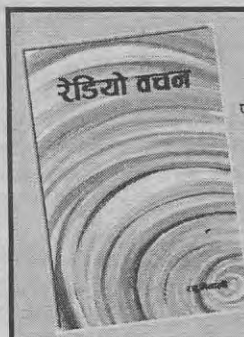 रेडियो वचन